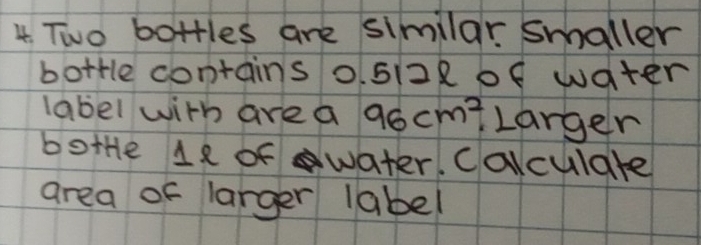 4. Two bottles are similar. Smaller
bottle contains 0.512l of water
label with area 96cm². Larger
bottle 1l of water. Calculate
area of larger label